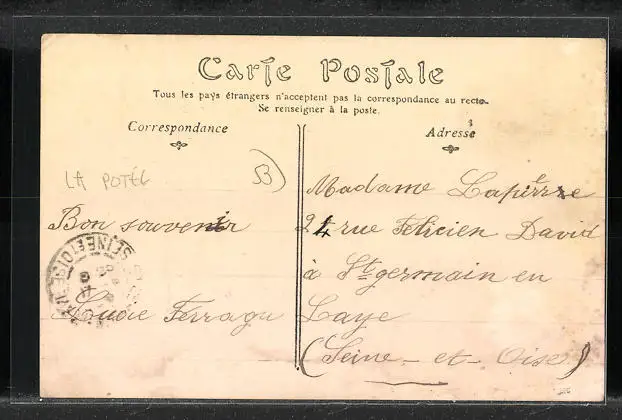 Carte Postale
Tous les pays étrangers n'acceptent pas la correspondance au recto.
Se renseigner à la poste.
Correspondance
Adresse
LA POTÉE
53
Bon souvenir
Ferragu
Madame Lapierre
24 rue Félicien David
à St germain en
Laye
(Seine-et-Oise)
SEINE ET OISE